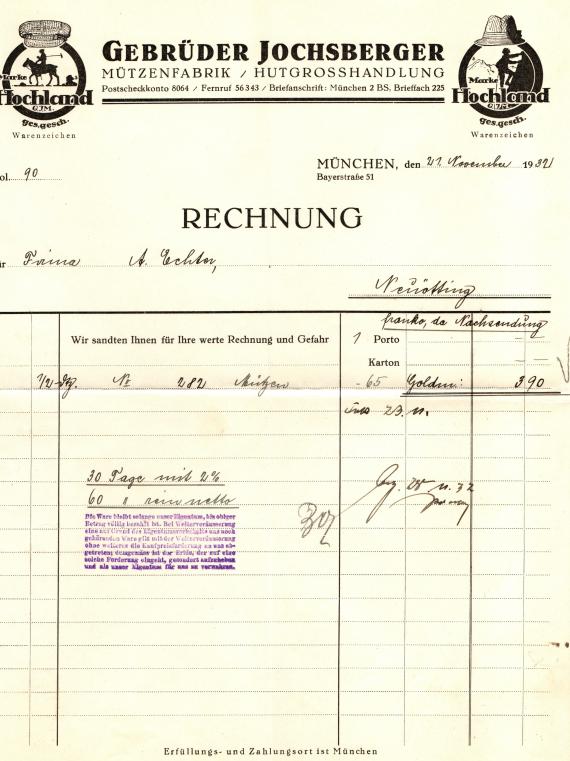 GEBRÜDER JOCHSBERGER
MÜTZENFABRIK / HUTGROSSHANDLUNG
Postscheckkonto 8064 / Fernruf 56343 / Briefanschrift: München 2 BS, Brieffach 225
Marke
Hochland
GJM.
ges.gesch.
Warenzeichen
Marke
Hochland
GJM.
ges.gesch.
Warenzeichen
ol. 90
MÜNCHEN, den 21. November 1932
Bayerstraße 51
RECHNUNG
ür Firma A. Echter,
Neuötting
franko, da Nachsendung
Wir sandten Ihnen für Ihre werte Rechnung und Gefahr
1 Porto
Karton
1/2 Dz. No 282 Mützen -65 Goldm: 390
23. 11.
30 Tage mit 2%
60 " rein netto
Die Ware bleibt solange unser Eigentum, bis obiger
Betrag völlig bezahlt ist. Bei Weiterveräusserung
eine auf Grund des Eigentumsvorbehalts uns noch
gehörenden Ware gilt mit der Weiterveräusserung
ohne weiteres die Kaufpreisforderung an uns ab-
getreten; demgemäss ist der Erlös, der auf eine
solche Forderung eingeht, gesondert aufzuheben
und als unser Eigentum für uns zu verwahren.
Erfüllungs- und Zahlungsort ist München